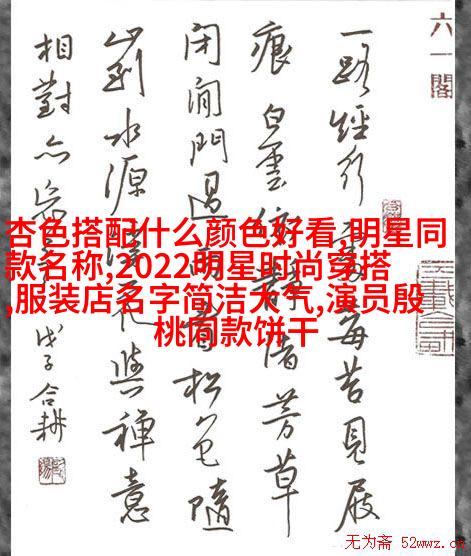 六一閣
一路經行苔見屐
痕白雲依靜渚芳草
閉閒門過雨看松色隨
山到水源溪花與禪意
相對亦
戊子合耕
杏色搭配什么颜色好看,明星同
款名称,2022明星时尚穿搭
,服装店名字简洁大气,演员殷
桃同款饼干
无为斋 52wwz.cn